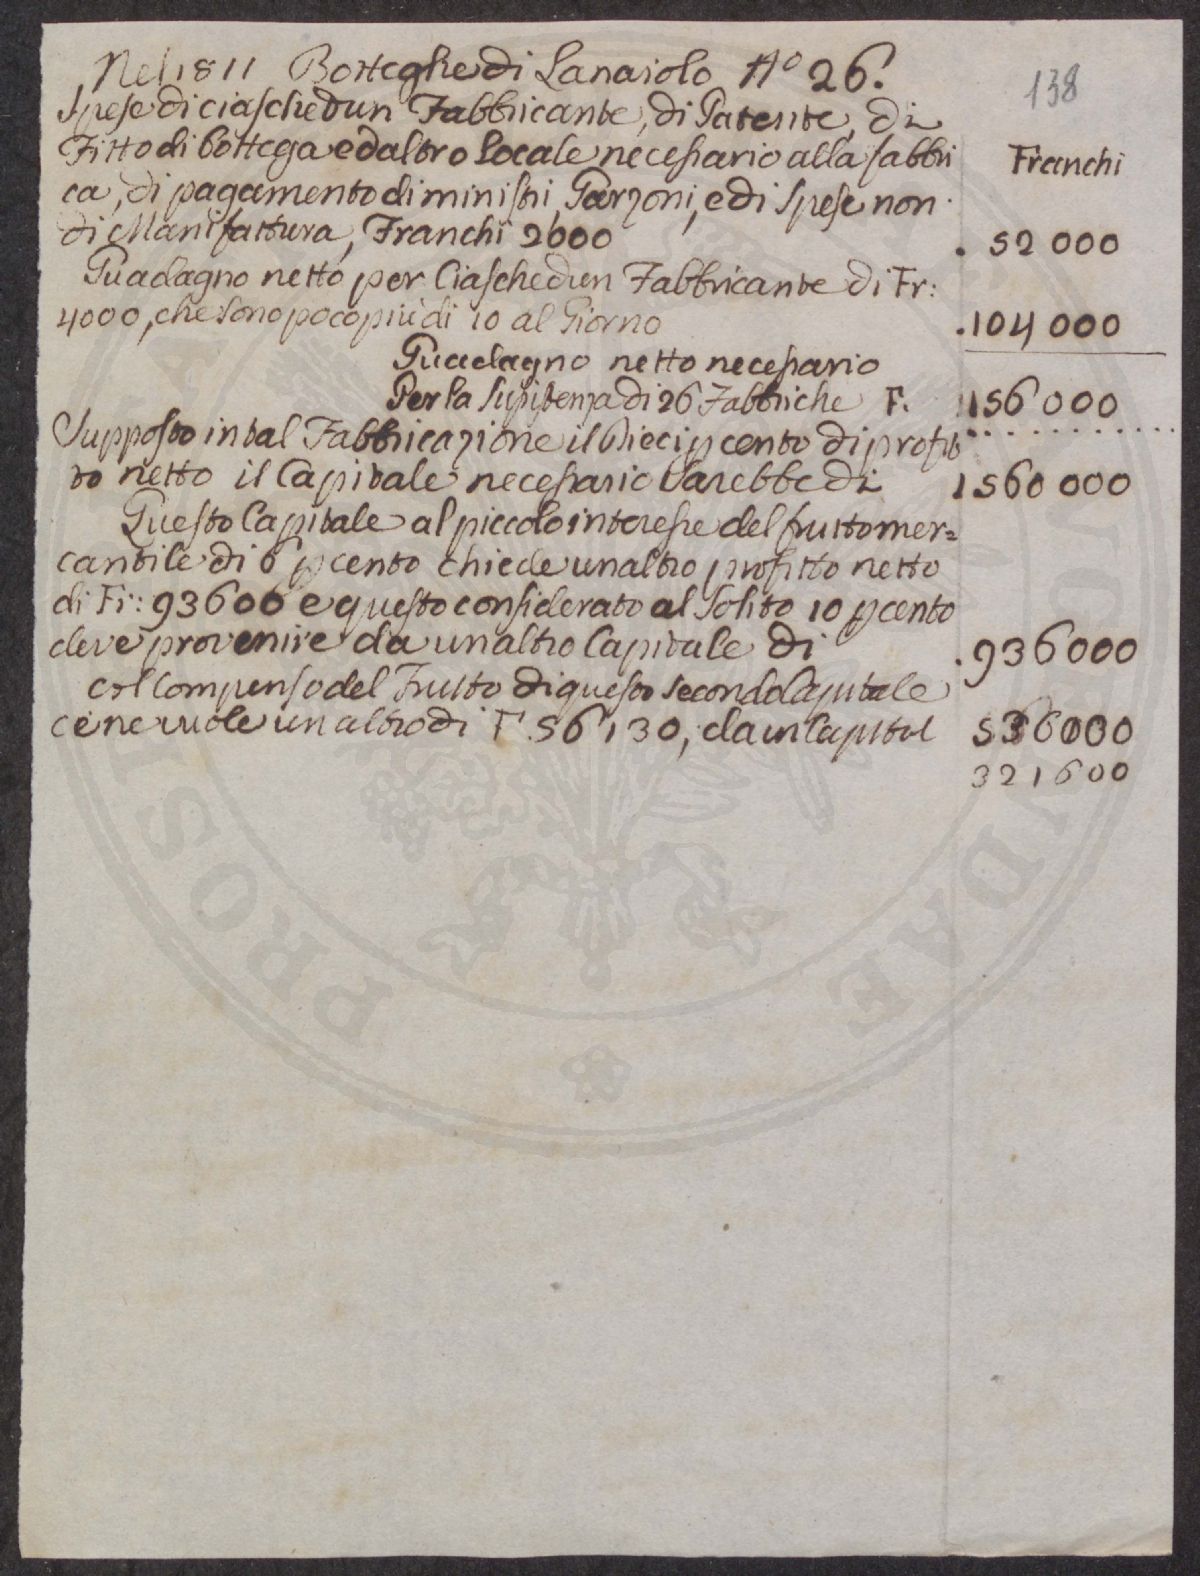 138
Nel 1811 Botteghe di Lanaiolo N° 26.
Spese di ciaschedun Fabbricante, di Patente, di
Fitto di bottega ed altro Locale necessario alla fabbri Franchi
ca, di pagamento di ministri, Garzoni, e di Spese non
di Manifattura, Franchi 2000 . 52 000
Guadagno netto per Ciaschedun Fabbricante di Fr:
4000, che sono poco più di 10 al Giorno .104 000
Guadagno netto necessario
Per la Sussistenza di 26 Fabbriche F. 156 000
Supposto in tal Fabbricazione il Dieci p cento di profit
to netto il Capitale necessario sarebbe di 1560 000
Questo Capitale al piccolo interesse del frutto mer=
cantile di 6 p cento chiede un altro profitto netto
di Fr: 93600 e questo considerato al Solito 10 p cento
deve provenire da un altro Capitale di .936000
col Compenso del Frutto di questo secondo Capitale
ce ne vuole un altro di F. 56130, da un Capital 536000
321600
PROSI
IDAE